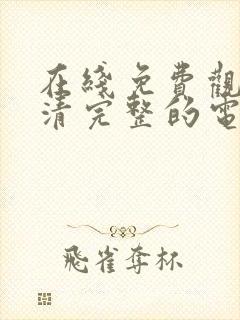 在綫免費觀
清完整的電
飛雀奪杯